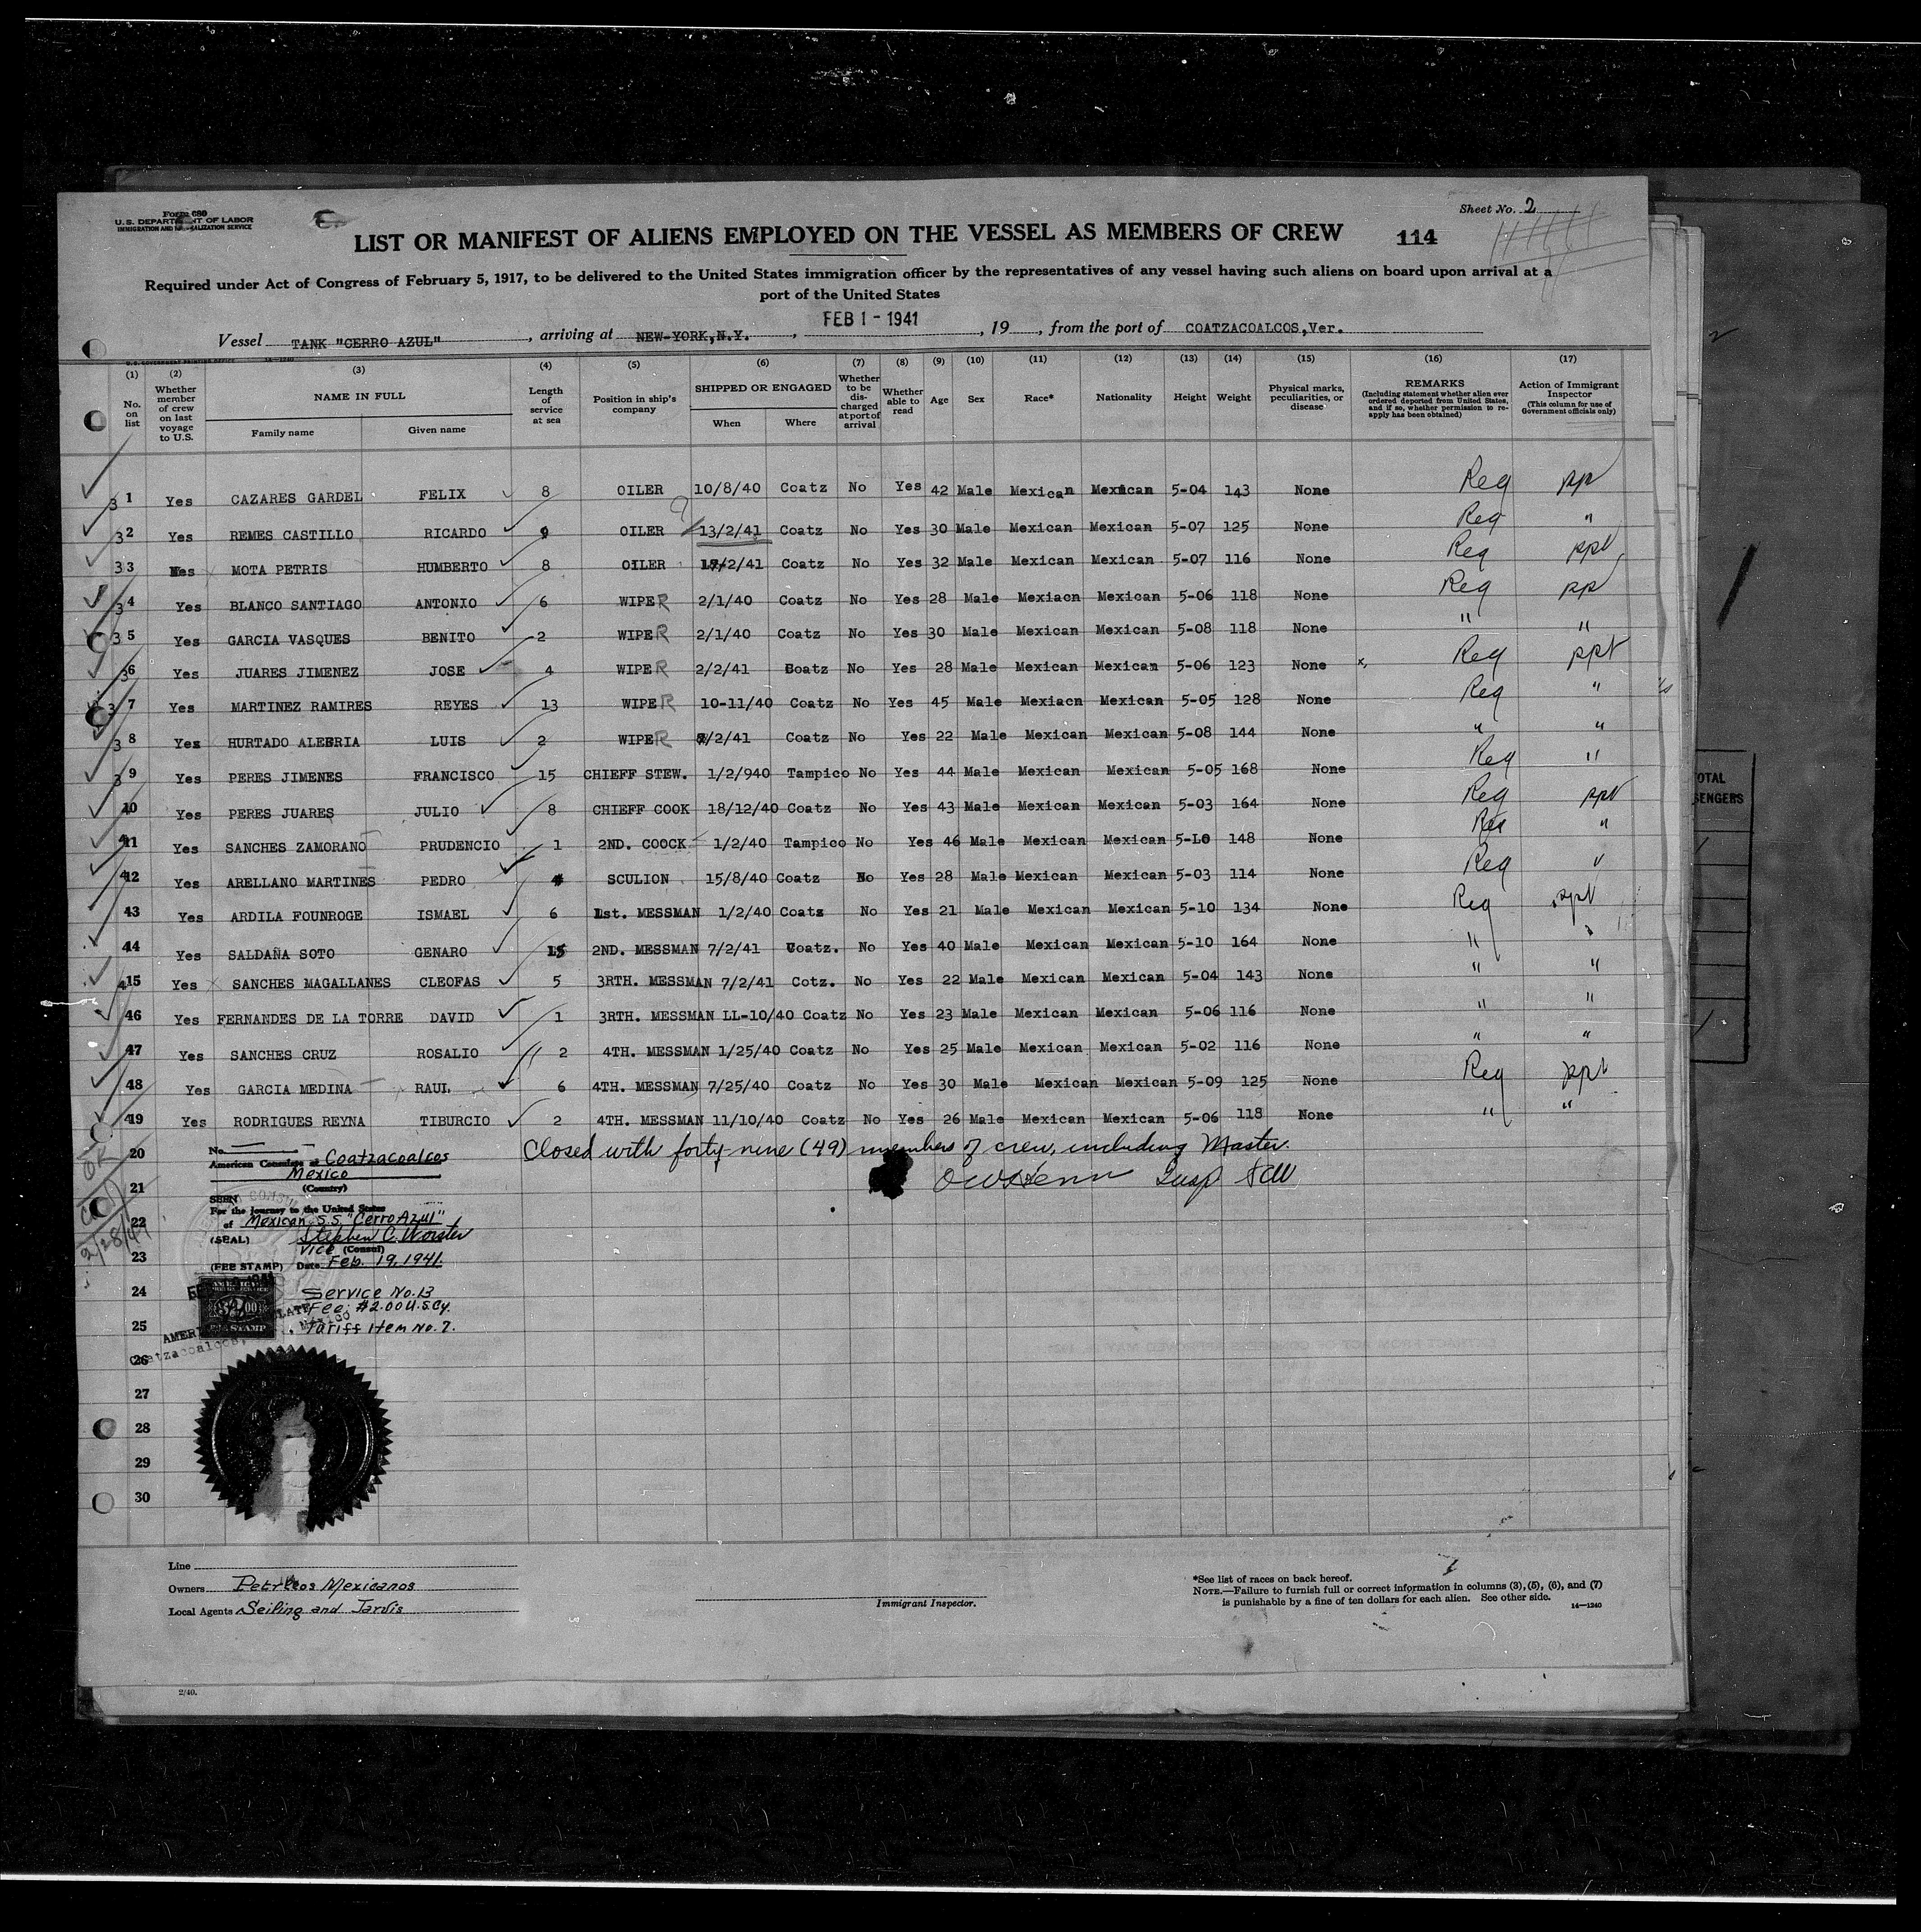 Form 680
U.S. DEPARTMENT OF LABOR
IMMIGRATION AND NATURALIZATION SERVICE
Sheet No. 2
LIST OR MANIFEST OF ALIENS EMPLOYED ON THE VESSEL AS MEMBERS OF CREW 114
Required under Act of Congress of February 5, 1917, to be delivered to the United States immigration officer by the representatives of any vessel having such aliens on board upon arrival at a
port of the United States
Vessel TANK "CERRO AZUL", arriving at NEW-YORK,N.Y., FEB 1 - 1941, 19, from the port of COATZACOALCOS,Ver.
U.S. GOVERNMENT PRINTING OFFICE 14-1240
(1) (2) (3) (4) (5) (6) (7) (8) (9) (10) (11) (12) (13) (14) (15) (16) (17)
No. on list
Whether member of crew on last voyage to U.S.
NAME IN FULL
Family name Given name
Length of service at sea
Position in ship's company
SHIPPED OR ENGAGED
When Where
Whether to be discharged at port of arrival
Whether able to read
Age
Sex
Race*
Nationality
Height
Weight
Physical marks, peculiarities, or disease
REMARKS
(Including statement whether alien ever ordered deported from United States, and if so, whether permission to reapply has been obtained)
Action of Immigrant Inspector
(This column for use of Government officials only)
31 Yes CAZARES GARDEL FELIX 8 OILER 10/8/40 Coatz No Yes 42 Male Mexican Mexican 5-04 143 None Req ppt
32 Yes REMES CASTILLO RICARDO 9 OILER 13/2/41 Coatz No Yes 30 Male Mexican Mexican 5-07 125 None Req "
33 Yes MOTA PETRIS HUMBERTO 8 OILER 17/2/41 Coatz No Yes 32 Male Mexican Mexican 5-07 116 None Req ppt
34 Yes BLANCO SANTIAGO ANTONIO 6 WIPER 2/1/40 Coatz No Yes 28 Male Mexiacn Mexican 5-06 118 None Req ppt
35 Yes GARCIA VASQUES BENITO 2 WIPER 2/1/40 Coatz No Yes 30 Male Mexican Mexican 5-08 118 None " "
36 Yes JUARES JIMENEZ JOSE 4 WIPER 2/2/41 Coatz No Yes 28 Male Mexican Mexican 5-06 123 None x, Req ppt
37 Yes MARTINEZ RAMIRES REYES 13 WIPER 10-11/40 Coatz No Yes 45 Male Mexiacn Mexican 5-05 128 None Req "
38 Yes HURTADO ALEGRIA LUIS 2 WIPER 7/2/41 Coatz No Yes 22 Male Mexican Mexican 5-08 144 None " "
39 Yes PERES JIMENES FRANCISCO 15 CHIEFF STEW. 1/2/940 Tampico No Yes 44 Male Mexican Mexican 5-05 168 None Req "
40 Yes PERES JUARES JULIO 8 CHIEFF COOK 18/12/40 Coatz No Yes 43 Male Mexican Mexican 5-03 164 None Req ppt
41 Yes SANCHES ZAMORANO PRUDENCIO 1 2ND. COOCK 1/2/40 Tampico No Yes 46 Male Mexican Mexican 5-L0 148 None Req "
42 Yes ARELLANO MARTINES PEDRO 4 SCULION 15/8/40 Coatz No Yes 28 Male Mexican Mexican 5-03 114 None Req "
43 Yes ARDILA FOUNROGE ISMAEL 6 1st. MESSMAN 1/2/40 Coatz No Yes 21 Male Mexican Mexican 5-10 134 None Req ppt
44 Yes SALDAÑA SOTO GENARO 15 2ND. MESSMAN 7/2/41 Coatz. No Yes 40 Male Mexican Mexican 5-10 164 None " "
45 Yes SANCHES MAGALLANES CLEOFAS 5 3RTH. MESSMAN 7/2/41 Cotz. No Yes 22 Male Mexican Mexican 5-04 143 None " "
46 Yes FERNANDES DE LA TORRE DAVID 1 3RTH. MESSMAN LL-10/40 Coatz No Yes 23 Male Mexican Mexican 5-06 116 None " "
47 Yes SANCHES CRUZ ROSALIO 2 4TH. MESSMAN 1/25/40 Coatz No Yes 25 Male Mexican Mexican 5-02 116 None " "
48 Yes GARCIA MEDINA RAUL 6 4TH. MESSMAN 7/25/40 Coatz No Yes 30 Male Mexican Mexican 5-09 125 None Req ppt
49 Yes RODRIGUES REYNA TIBURCIO 2 4TH. MESSMAN 11/10/40 Coatz No Yes 26 Male Mexican Mexican 5-06 118 None " "
20 Closed with forty nine (49) members of crew, including Master.
No.
American Consulate at Coatzacoalcos
Mexico
(Country)
21
SEEN
For the journey to the United States
22 of Mexican S.S. "Cerro Azul"
(SEAL) Stephen C. Worster
Vice (Consul)
23
(FEE STAMP) Date Feb. 19, 1941.
24 Service No. 13
Fee: $2.00 U.S.Cy.
25 Tariff item No. 7.
26
27
28
29
30
OK
2/28/41
Line
Owners Petroleos Mexicanos
Local Agents Seifing and Jarvis
Immigrant Inspector.
*See list of races on back hereof.
NOTE.—Failure to furnish full or correct information in columns (3), (5), (6), and (7)
is punishable by a fine of ten dollars for each alien. See other side.
14—1240
2/40.
TOTAL